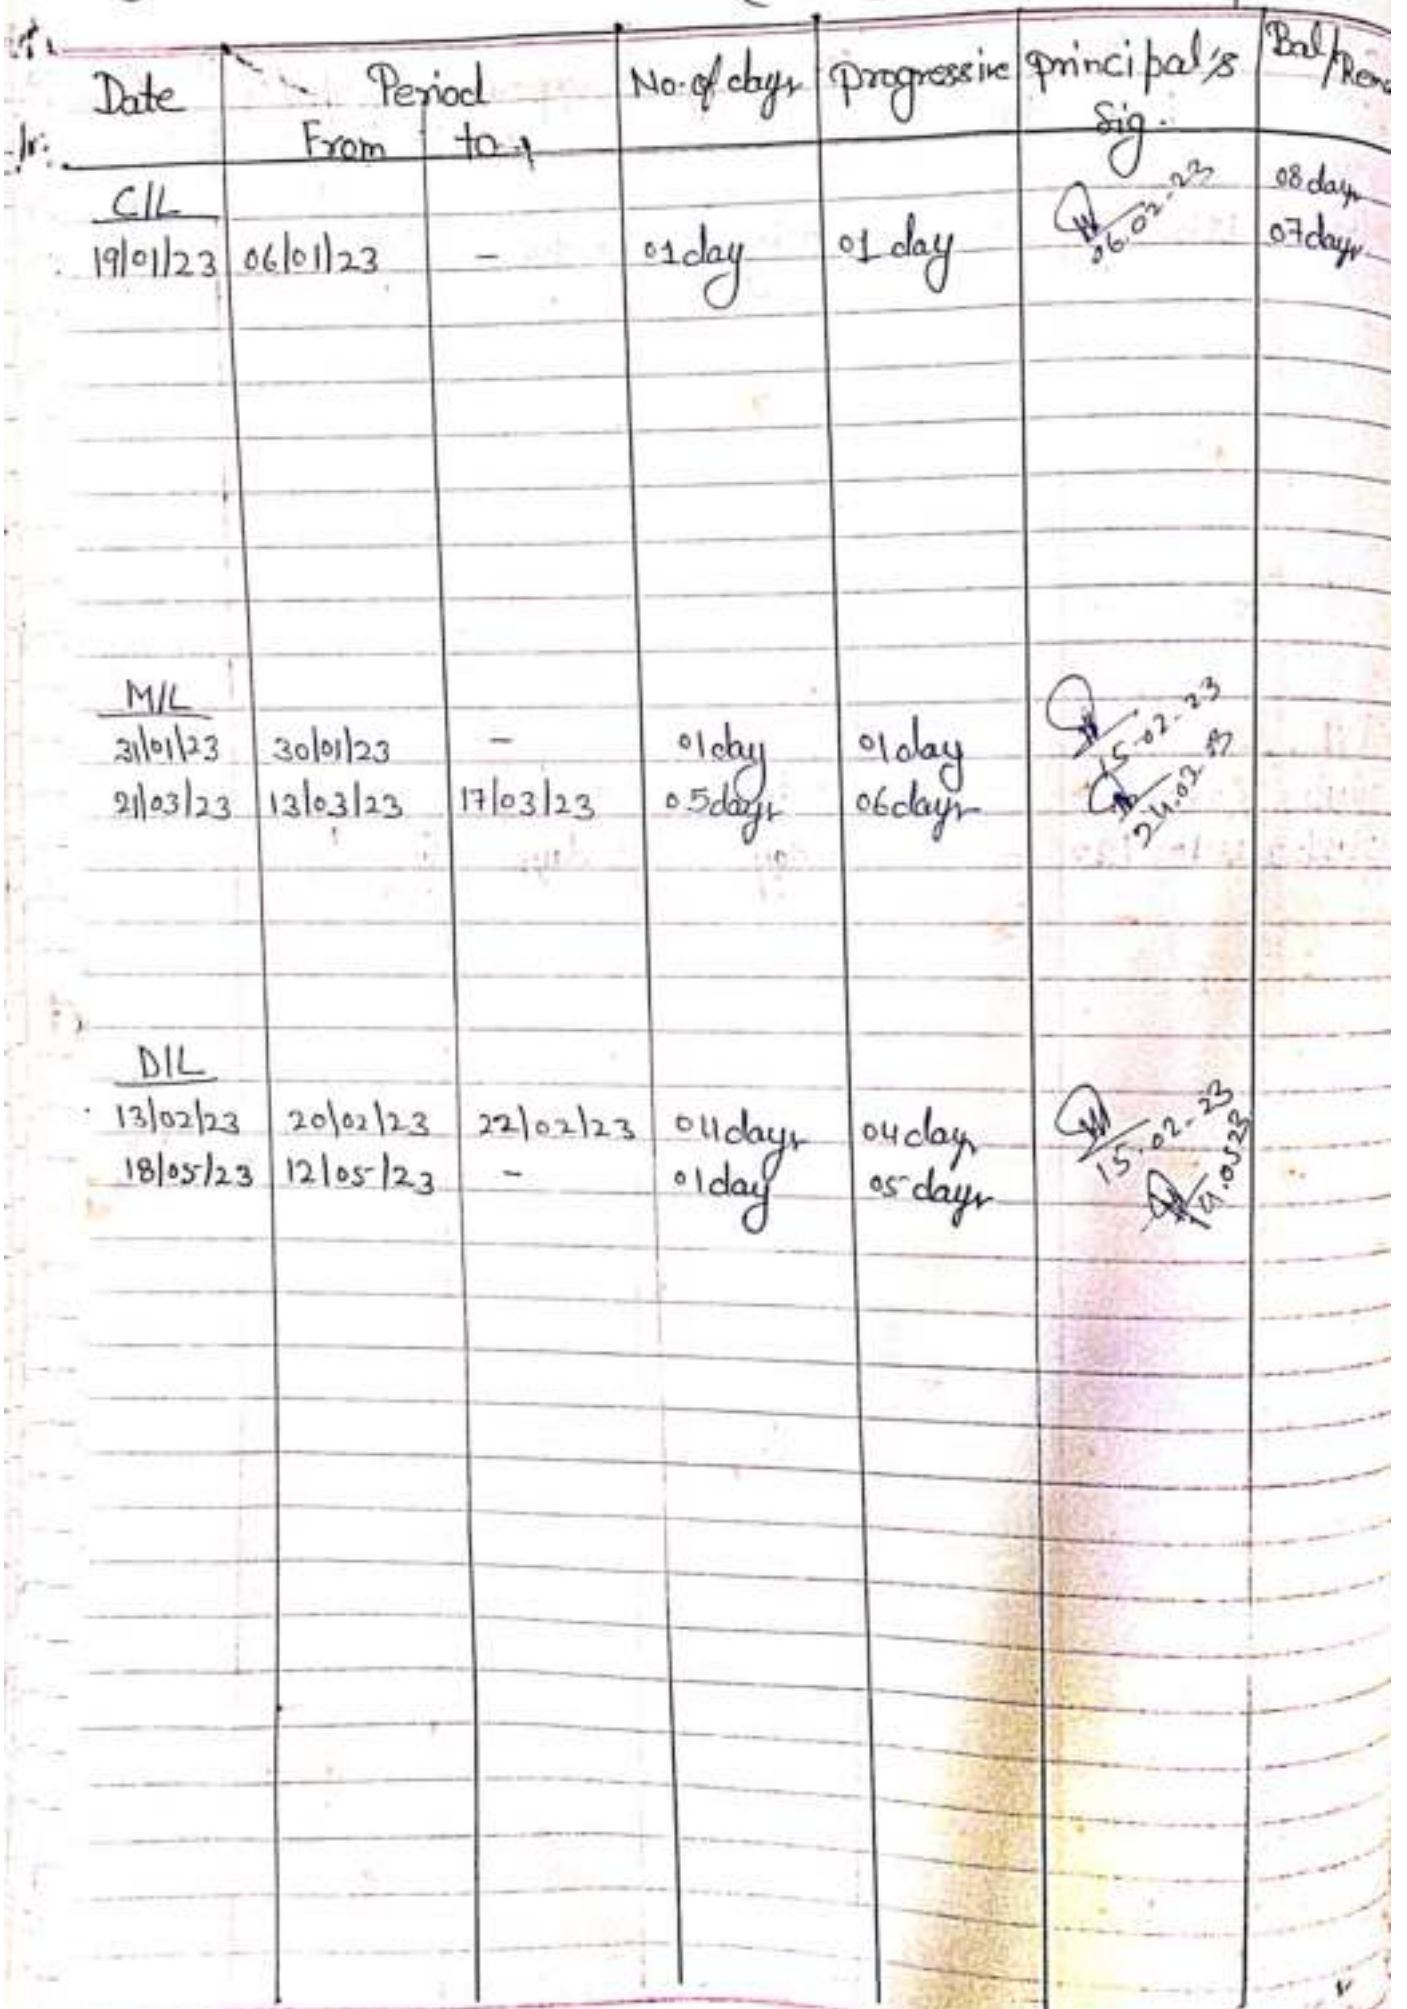 Date Period No. of days Progressive Principal's Bal/
From to Sig.
C/L 08 days
19/01/23 06/01/23 - 01 day 01 day 06.02-23 07 days
M/L
31/01/23 30/01/23 - 01 day 01 day 15-02-23
21/03/23 13/03/23 17/03/23 05 days 06 days
D/L
13/02/23 20/02/23 22/02/23 04 days 04 days 15.02-23
18/05/23 12/05/23 - 01 day 05 days